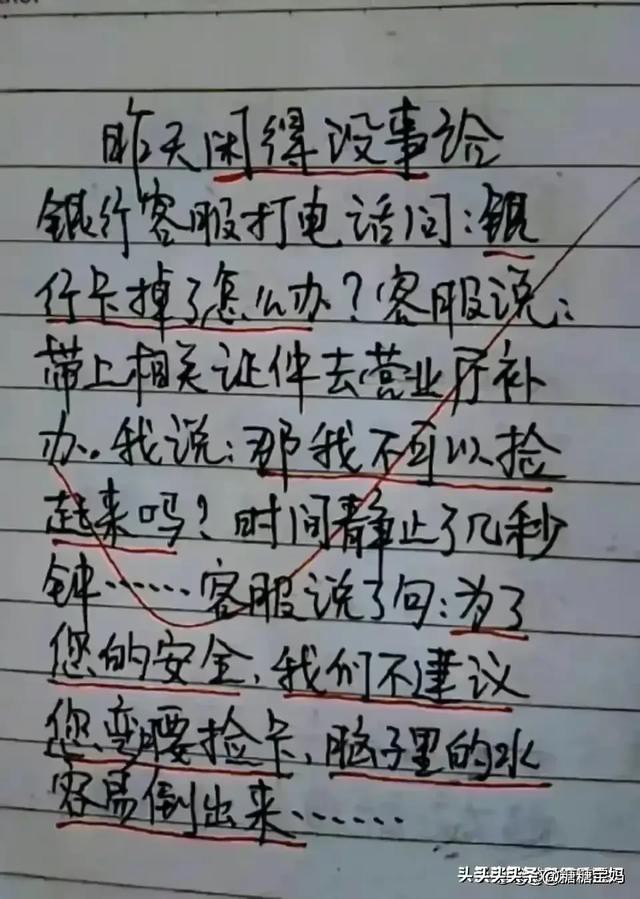 昨天闲得没事给
银行客服打电话问：银
行卡掉了怎么办？客服说：
带上相关证件去营业厅补
办。我说：那我不可以捡
起来吗？时间静止了几秒
钟……客服说了句：为了
您的安全，我们不建议
您弯腰捡卡，脑子里的水
容易倒出来……
头条 @糖糖宝妈